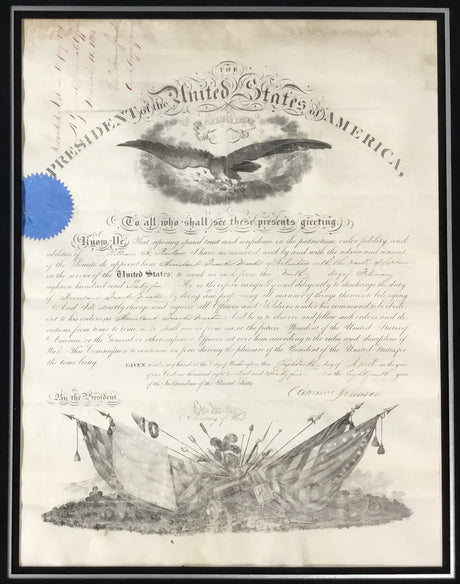 THE
PRESIDENT of the United States of AMERICA,
To all who shall see these presents greeting:
Know Ye, That reposing special trust and confidence in the patriotism, valor, fidelity, and
abilities of William I have nominated, and by and with the advice and consent
of the Senate, do appoint him Assistant Quarter Master of Volunteers with the rank of
in the service of the United States: to rank as such from the day of February
eighteen hundred and Sixty five He is therefore carefully and diligently to discharge the duty
of Assistant Quarter Master by doing and performing all manner of things thereunto belonging.
And I do strictly charge, and require all Officers and Soldiers under his command to be obedi-
ent to his orders as Assistant Quarter Master And he is to observe and follow such orders and di-
rections from time to time as he shall receive from me or the future President of the United States of
America or the General or other superior Officers set over him according to the rules and discipline of
War. This Commission to continue in force during the pleasure of the President of the United States for
the time being.
GIVEN under my hand at the City of Washington this day of April in the year
of our Lord one thousand eight hundred and Sixty five in the Eighty ninth year
of the Independence of the United States
By the President
Andrew Johnson
Secretary of War